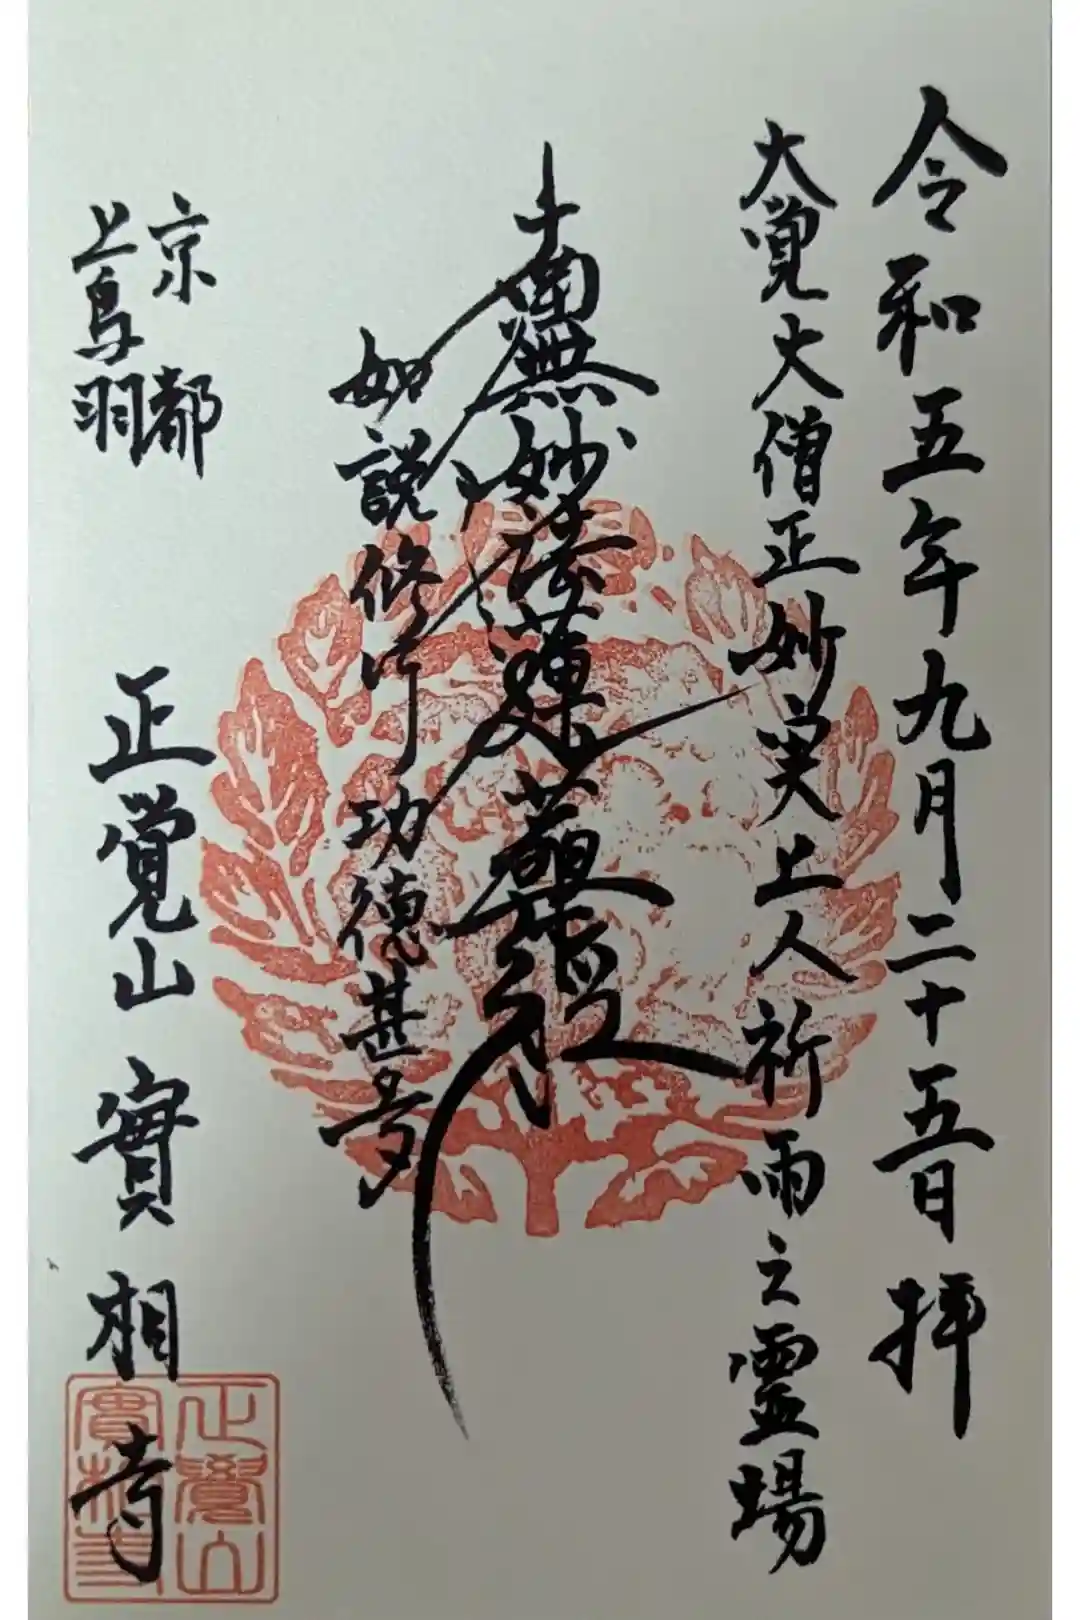 令和五年九月二十五日 拝
大覚大僧正妙実上人祈雨之霊場
南無妙法蓮華経
如説修行 功徳甚多
京都
上鳥羽
正覚山 實相寺
正覺山
實相寺